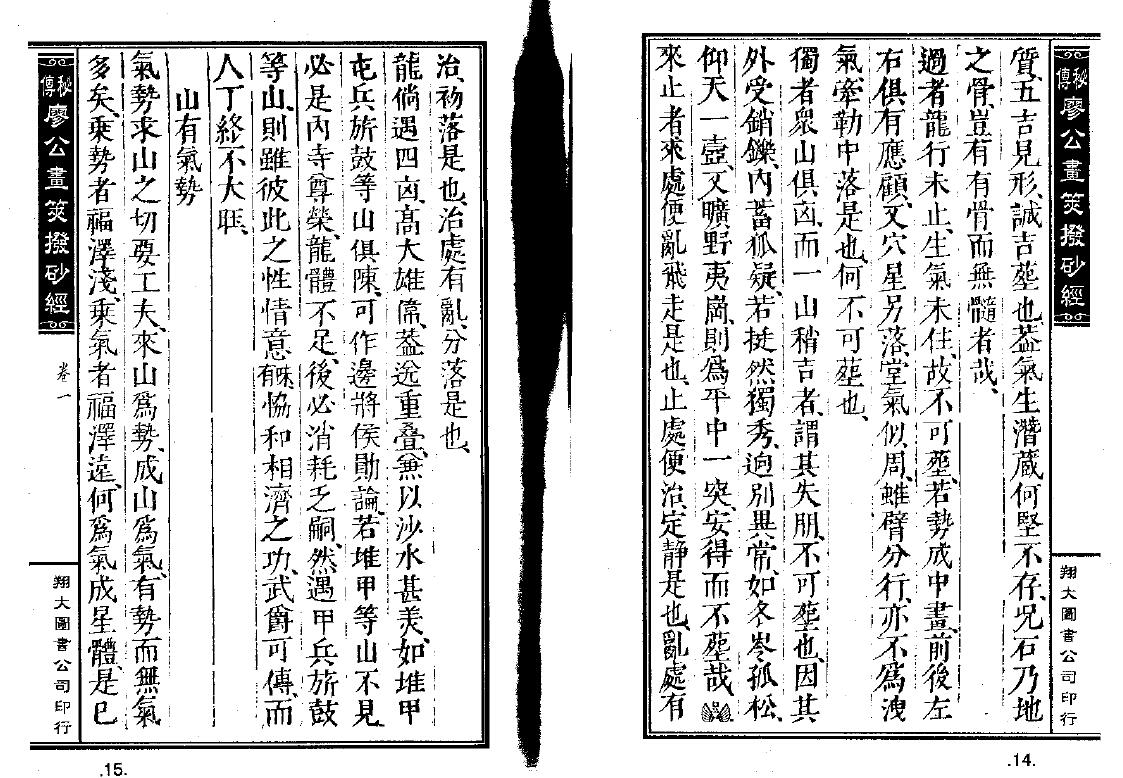 秘傳廖公畫筴撥砂經
翔大圖書公司印行
質、五吉見形、誠吉塟也、葢氣生潛藏何堅不存、况石乃地
之骨、豈有有骨而無髓者哉、
過者龍行未止、生氣未住、故不可塟、若勢成中畫、前後左
右俱有應顧、又穴星另落、堂氣似周、雖臂分行、亦不為洩
氣、牽勒中落是也、何不可塟也、
獨者衆山俱凶、而一山稍吉者、謂其失朋、不可塟也、因其
外受銷鑠、內蓄狐疑、若挺然獨秀、逈別異常、如冬岑孤松、
仰天一壺、又曠野夷崗、則為平中一突、安得而不塟哉
來止者、來處便亂、飛走是也、止處便治、定靜是也、亂處有
.14.
治、初落是也、治處有亂、分落是也、
龍倘遇四凶、高大雄偉、葢送重叠、兼以沙水甚美、如堆甲
屯兵旂鼓等山俱陳、可作邊將侯勛論、若堆甲等山不見
必是內寺尊榮、龍體不足、後必消耗乏嗣、然遇甲兵旂鼓
等山、則雖彼此之性情意、有恊和相濟之功、武爵可傳、而
人丁終不大旺、
山有氣勢
氣勢求山之切要工夫、來山爲勢、成山爲氣、有勢而無氣
多矣、乘勢者福澤淺、乘氣者福澤遠、何爲氣、成星體、是已
秘傳廖公畫筴撥砂經
卷一
翔大圖書公司印行
.15.